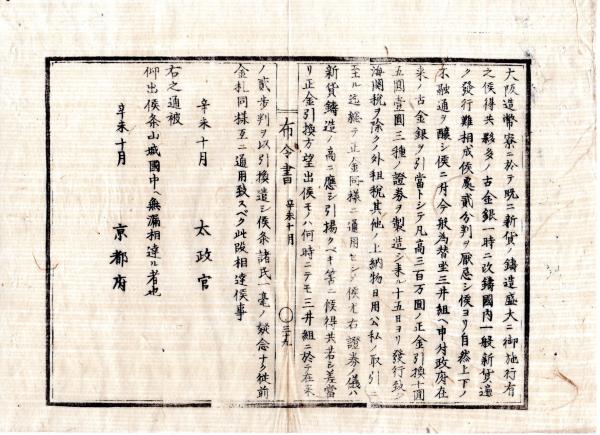 大阪造幣寮ニ於テ既ニ新貨ノ鋳造盛大ニ御施行有
之候得共夥多ノ古金銀一時ニ改鋳國内一般新貨遍
ク發行難相成候處貳分判ヲ厭忌シ候ヨリ自然上下ノ
不融通ヲ醸シ候ニ付今般為替坐三井組ヘ申付政府在
来ノ古金銀ヲ引當トシテ凡高三百万圓ノ正金引換十圓
五圓壹圓三種ノ證券ヲ製造シ来ル十五日ヨリ發行致シ
海関税ヲ除クノ外租税其他ノ上納物日用公私ノ取引ニ
至ル迄総テ正金同様ニ通用セシメ候尤右證券ノ儀ハ
新貨鋳造ノ高ニ應シ引揚クベキ筈ニ候得共若シ差當
リ正金引換方望出候モノハ何時ニテモ三井組ニ於テ在来
布令書 辛未十月 〇三十九
ノ貳歩判ヲ以引換遣シ候条諸民一毫ノ疑念ナク従前
金札同様互ニ通用致スベク此段相達候事
辛未十月 太政官
右之通被
仰出候条山城國中ヘ無漏相達ル者也
辛未十月 京都府